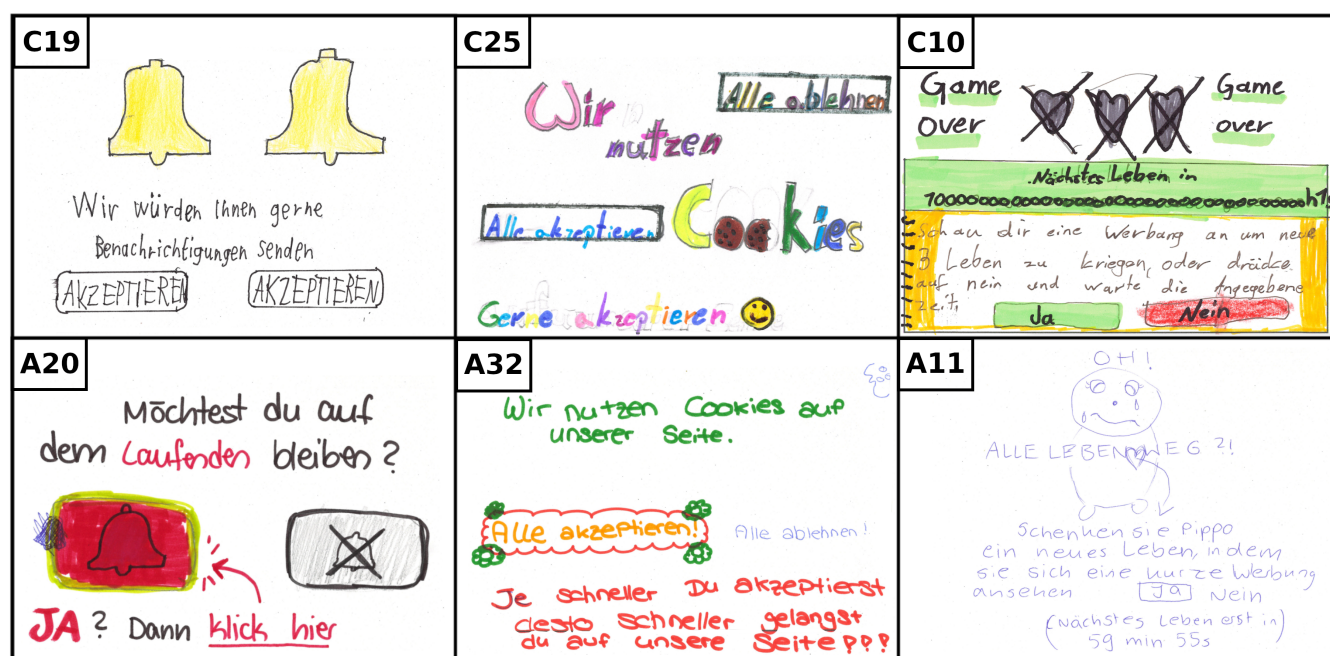 C19
Wir würden Ihnen gerne
Benachrichtigungen senden
AKZEPTIEREN AKZEPTIEREN
C25
Wir
nutzen
Alle ablehnen
Alle akzeptieren
Cookies
Gerne akzeptieren
C10
Game
over
Game
over
Nächstes Leben in
Schau dir eine Werbang an um neue
3 Leben zu kriegen, oder drücke
auf nein und warte die Angegebene
zeit,
Ja Nein
A20
Möchtest du auf
dem Laufenden bleiben?
JA? Dann klick hier
A32
Wir nutzen Cookies auf
unserer Seite.
Alle akzeptieren! Alle ablehnen!
Je schneller Du akzeptierst
desto schneller gelangst
du auf unsere Seite
A11
OH!
ALLE LEBEN WEG?!
Schenken sie Pippo
ein neues Leben, indem
sie sich eine kurze Werbung
ansehen Ja Nein
(Nächstes Leben erst in)
59 min 55s